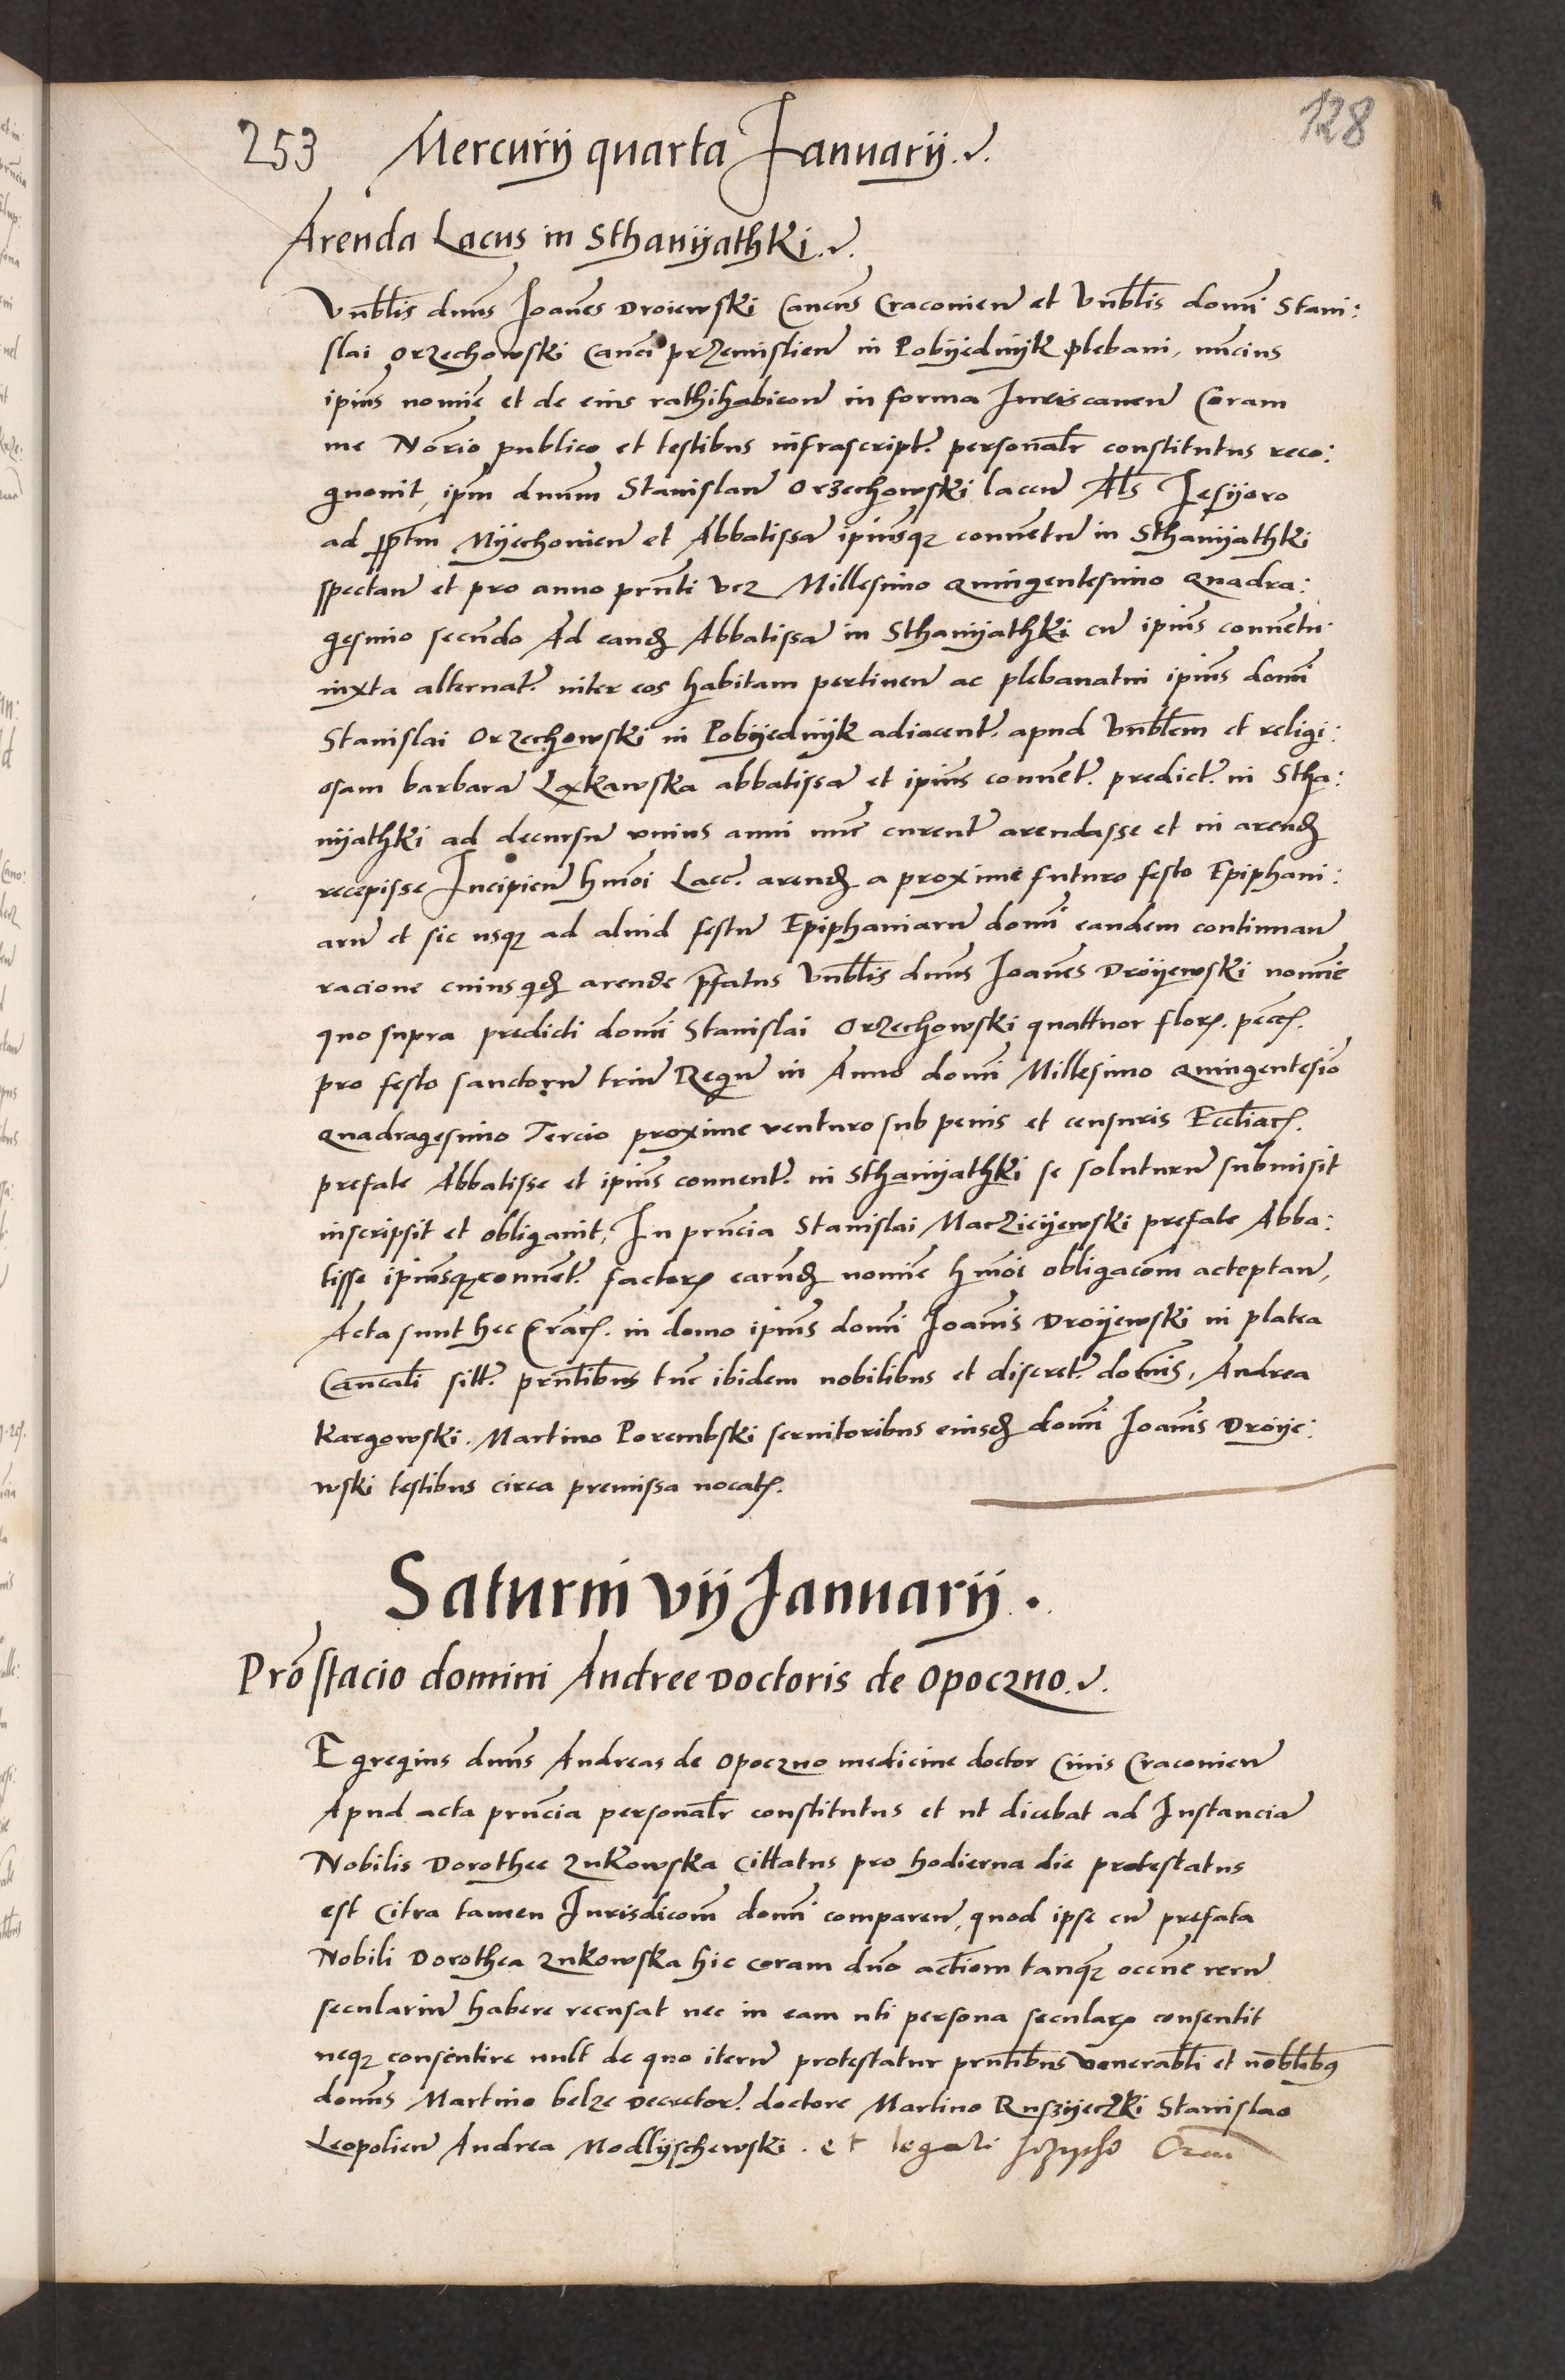 128
253 Mercurij quarta Januarij.
Arenda Lacus in Sthanijathki.
Vnblis dnus Joanes Droiewski Cancus Craconien et Vnblis domi Stani:
slai Orzechowski Canci przemislien in Pobijednijk plebani, nuncius
ipius nomie et de eius rathihabicon in forma Juris cauen Coram
me Notrio publico et testibus infrascript. personalr constitutus reco:
gnouit, ipm dnum Stanislau Orzechowski lacu Als Jesijoro
ad pptm Myechouien et Abbatissa ipiusqz conuentu in Sthanijathki
spectan et pro anno prnti vcz Millesimo Quingentesimo Quadra:
gesimo secundo Ad eand Abbatissa in Sthanijathki cu ipius conuentu
iuxta alternat. inter eos habitam pertinen ac plebanatui ipius domi
Stanislai Orzechowski in Pobijednijk adiacent. apud Vnblem et religi:
osam barbara Laxkawska abbatissa et ipius conuent. predict. in Stha:
nijathki ad decursu vnius anni nuc curent arendasse et in arend
recepisse Incipien hmoi Lacc. arend a proxime futuro festo Epiphani:
aru et sic usqz ad aliud festu Epiphaniaru domi eandem continuan
racione cuius qd arende pfatus Vnblis dnus Joanes Droijewski nomie
quo supra predicti domi Stanislai Orzechowski quattuor flor. pecc.
pro festo sanctoru triu Regu in Anno domi Millesimo Quingentesio
Quadragesimo Tercio proxime venturo sub penis et censuris Eccliac.
prefate Abbatisse et ipius conuent. in Sthanijathki se soluturu submisit
inscripsit et obligauit, In prncia Stanislai Marzicijewski prefate Abba:
tisse ipiusqz conuent. factor earund nomie hmoi obligacom acceptan,
Acta sunt hec Crac. in domo ipius domi Joanis Droijewski in platea
Cancali sitt. prntibus tuc ibidem nobilibus et discret. domis, Andrea
Kargowski. Martino Porembski seruitoribus eiusd domi Joanis Droije:
wski testibus circa premissa uocat.
Saturni vij Januarij.
Prostacio domini Andree Doctoris de Opoczno.
Egregius dnus Andreas de Opoczno medicine doctor Ciuis Craconien
Apud acta prncia personalr constitutus et ut dicebat ad Instancia
Nobilis Dorothee Zukowska Cittatus pro hodierna die protestatus
est Citra tamen Jurisdicom domi comparen, quod ipse cu prefata
Nobili Dorothea Zukowska hic coram dno actiom tanqz occne reru
seculariu habere recusat nec in eam uti persona secular consentit
neqz consentire uult de quo iteru protestatur prntibus venerabli et noblibus
domis Martino belze Decretor. doctore Martino Ruszijeczki Stanislao
Leopolien Andrea Modlijschewski. et